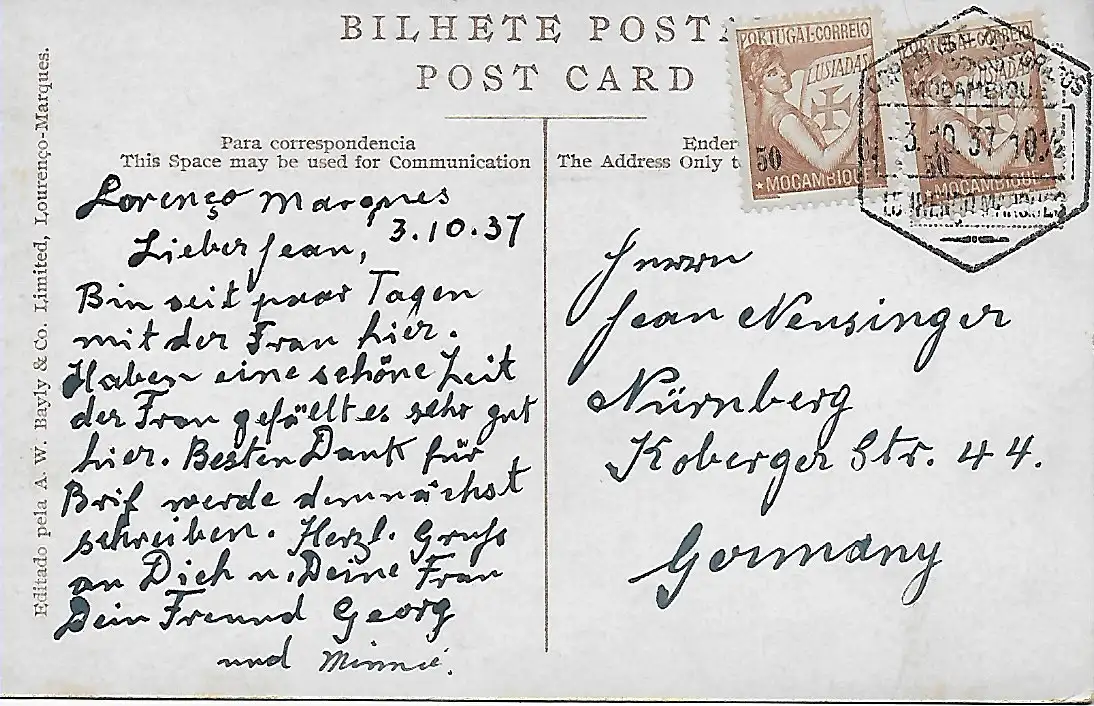 BILHETE POSTA
POST CARD
Para correspondencia
This Space may be used for Communication
Lorenço Marques
3.10.37
Lieber Jean,
Bin seit paar Tagen
mit der Frau hier.
Haben eine schöne Zeit
der Frau gefäelt es sehr gut
hier. Besten Dank für
Brif werde demnächst
schreiben. Herzl. Gruss
an Dich u. Deine Frau
Dein Freund Georg
und Minnie.
Editado pela A. W. Bayly & Co. Limited, Lourenço-Marques.
Ender
The Address Only t
Herrn
Jean Neusinger
Nürnberg
Koberger Str. 44.
Germany
PORTUGAL·CORREIO
LUSIADAS
50
★MOÇAMBIQUE
PORTUGAL·CORREIO
LUSIADAS
50
★MOÇAMBIQUE
MOÇAMBIQUE
3.10.37
LOURENÇO MARQUES